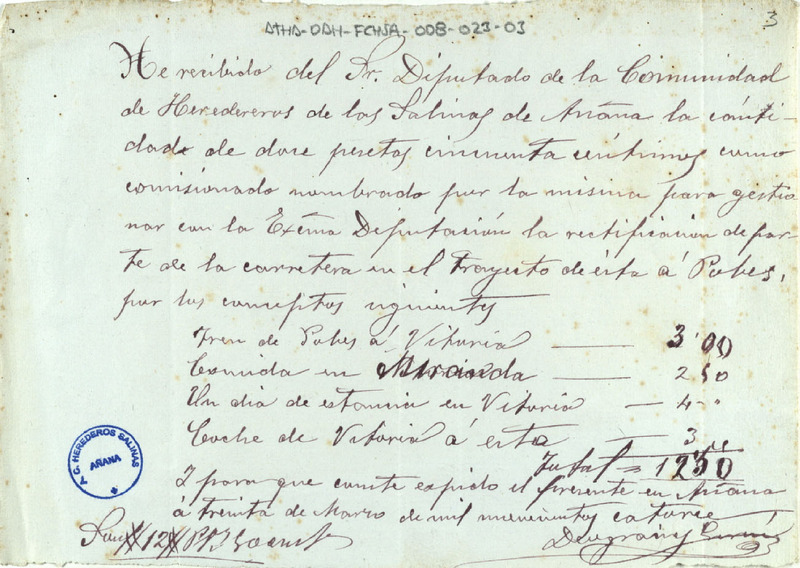 ATHA-DAH-FCHSA-008-023-03
3
He recibido del Sr. Diputado de la Comunidad
de Herederos de las Salinas de Añana la cánti-
dad de doce pesetas cincuenta céntimos como
comisionado nombrado por la misma para gestio
nar con la Exẽma Diputación la rectificacion de par-
te de la carretera en el trayecto de ésta á Pobes,
por los conceptos siguientes
Tren de Pobes á Vitoria — 3'00
Comida en Miranda — 2 50
Un dia de estancia en Vitoria — 4 "
Coche de Vitoria á esta — 3 "
Total = 12'50
Y para que conste expido el presente en Añana
á treinta de Marzo de mil novecientos catorce
Son # 12 #
C. HEREDEROS SALINAS
AÑANA